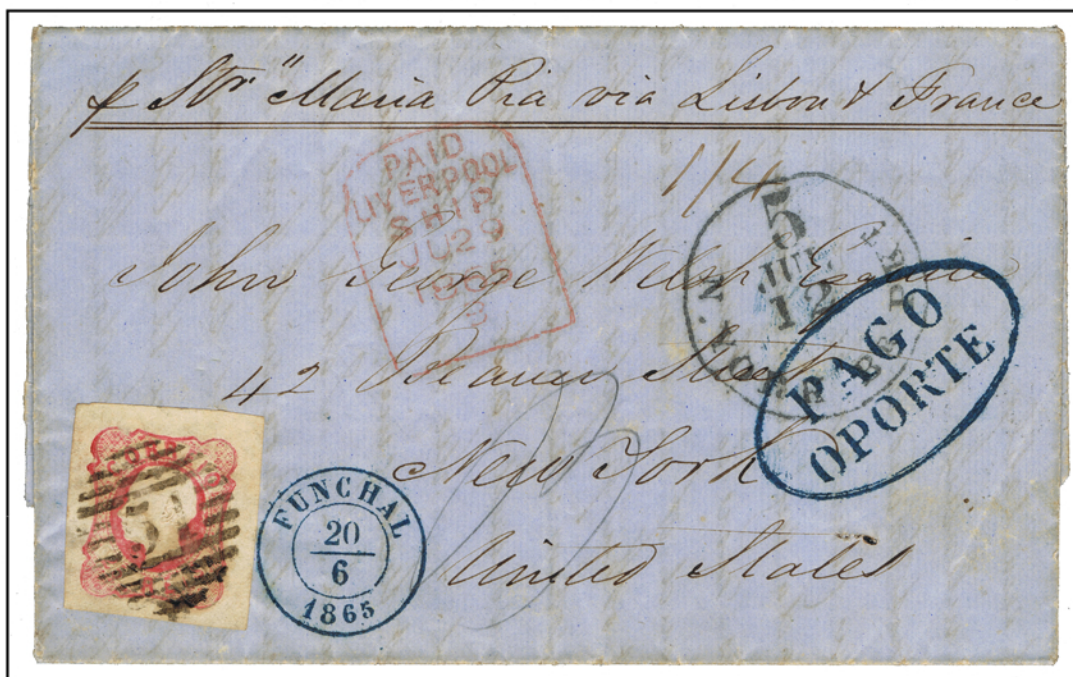 p Str "Maria Pia via Lisbon & France
PAID
LIVERPOOL
SHIP
JU29
1/4
5
JUL
12
John George Welsh Esquire
42 Beaver Street
New York
United States
PAGO
OPORTE
CORREIO
FUNCHAL
20
6
1865